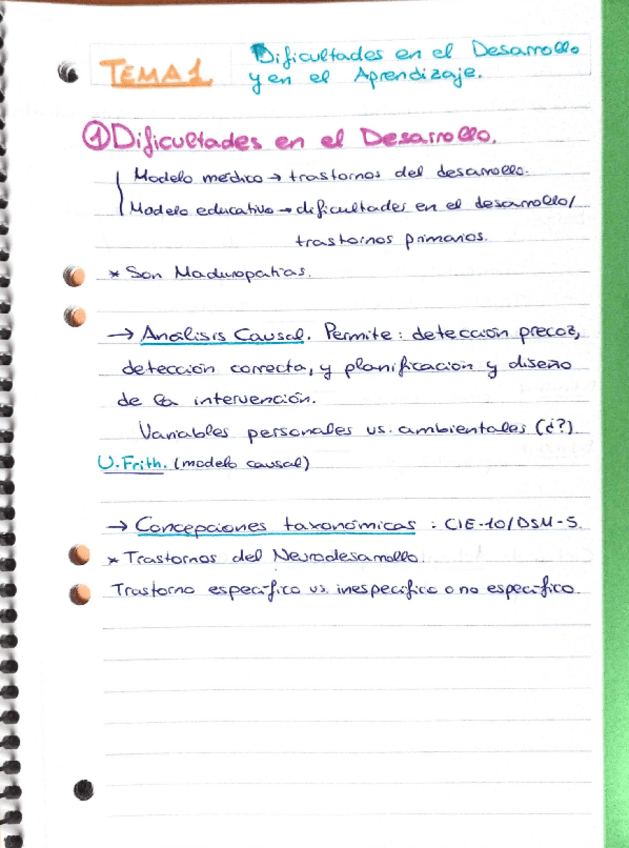 TEMA 1. Dificultades en el Desarrollo
y en el Aprendizaje.
① Dificultades en el Desarrollo.
Modelo médico → trastornos del desarrollo.
Modelo educativo → dificultades en el desarrollo/
trastornos primarios.
* Son Maduropatías.
→ Análisis Causal. Permite: detección precoz,
detección correcta, y planificación y diseño
de la intervención.
Variables personales vs. ambientales (¿?).
U. Frith. (modelo causal)
→ Concepciones taxonómicas : CIE-10/DSM-5.
* Trastornos del Neurodesarrollo.
Trastorno específico vs. inespecífico o no específico.